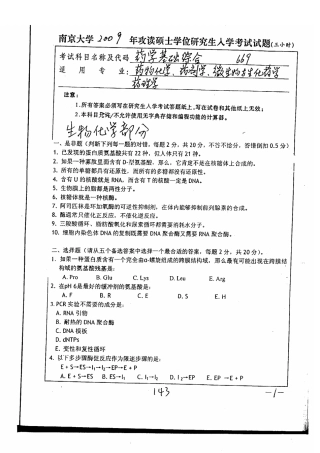 南京大学 2009 年攻读硕士学位研究生入学考试试题(三小时)
考试科目名称及代码 药学基础综合 669
适 用 专 业: 药物化学、药剂学、微生物与生化药学
药理学
注意:
1.所有答案必须写在研究生入学考试答题纸上,写在试卷和其他纸上无效;
2.本科目允许/不允许使用无字典存储和编程功能的计算器。
生物化学部分
一、是非题(判断下列每一题的对错,每题 2 分,共 20 分,不答不给分,答错倒扣 0.5 分)
1. 已发现的蛋白质氨基酸共有 22 种,但人体只有 21 种。
2. 如果一种寡肽里面含有 D-型氨基酸,那么,它肯定不是在核糖体上合成的。
3. 所有的单糖都具有还原性,而所有的多糖都没有还原性。
4. 含有 U 的核酸就是 RNA,而含有 T 的核酸一定是 DNA。
5. 生物膜上的脂都是两性分子。
6. 核糖体就是一种核酶。
7. 阿司匹林是环加氧酶的可逆性抑制剂,在体内能够抑制前列腺素的合成。
8. 酶通常只催化正反应,不催化逆反应。
9. 三羧酸循环、脂肪酸氧化和尿素循环都需要消耗水分子。
10. 细胞内染色体 DNA 的复制既需要 DNA 聚合酶又需要 RNA 聚合酶。
二、选择题(请从五个备选答案中选择一个最合适的答案,每题 2 分,共 20 分)
1. 如果一种蛋白质含有一个完全由α-螺旋组成的跨膜结构域,那么最有可能出现在跨膜结
构域的氨基酸残基是:
A. Pro B. Glu C. Lys D. Leu E. Arg
2. 在pH 6是最好的缓冲剂的氨基酸是:
A. F B. R C. E D. S E. H
3. PCR 实验不需要的成分是:
A. RNA 引物
B. 耐热的 DNA 聚合酶
C. DNA 模板
D. dNTPs
E. 变性和复性循环
4. 以下多步骤酶促反应作为限速步骤的是:
E + S→ES→I₁→I₂→EP→E + P
A. E + S→ES B. ES→I₁ C. I₁→I₂ D. I₂→EP E. EP →E + P
143 -1-